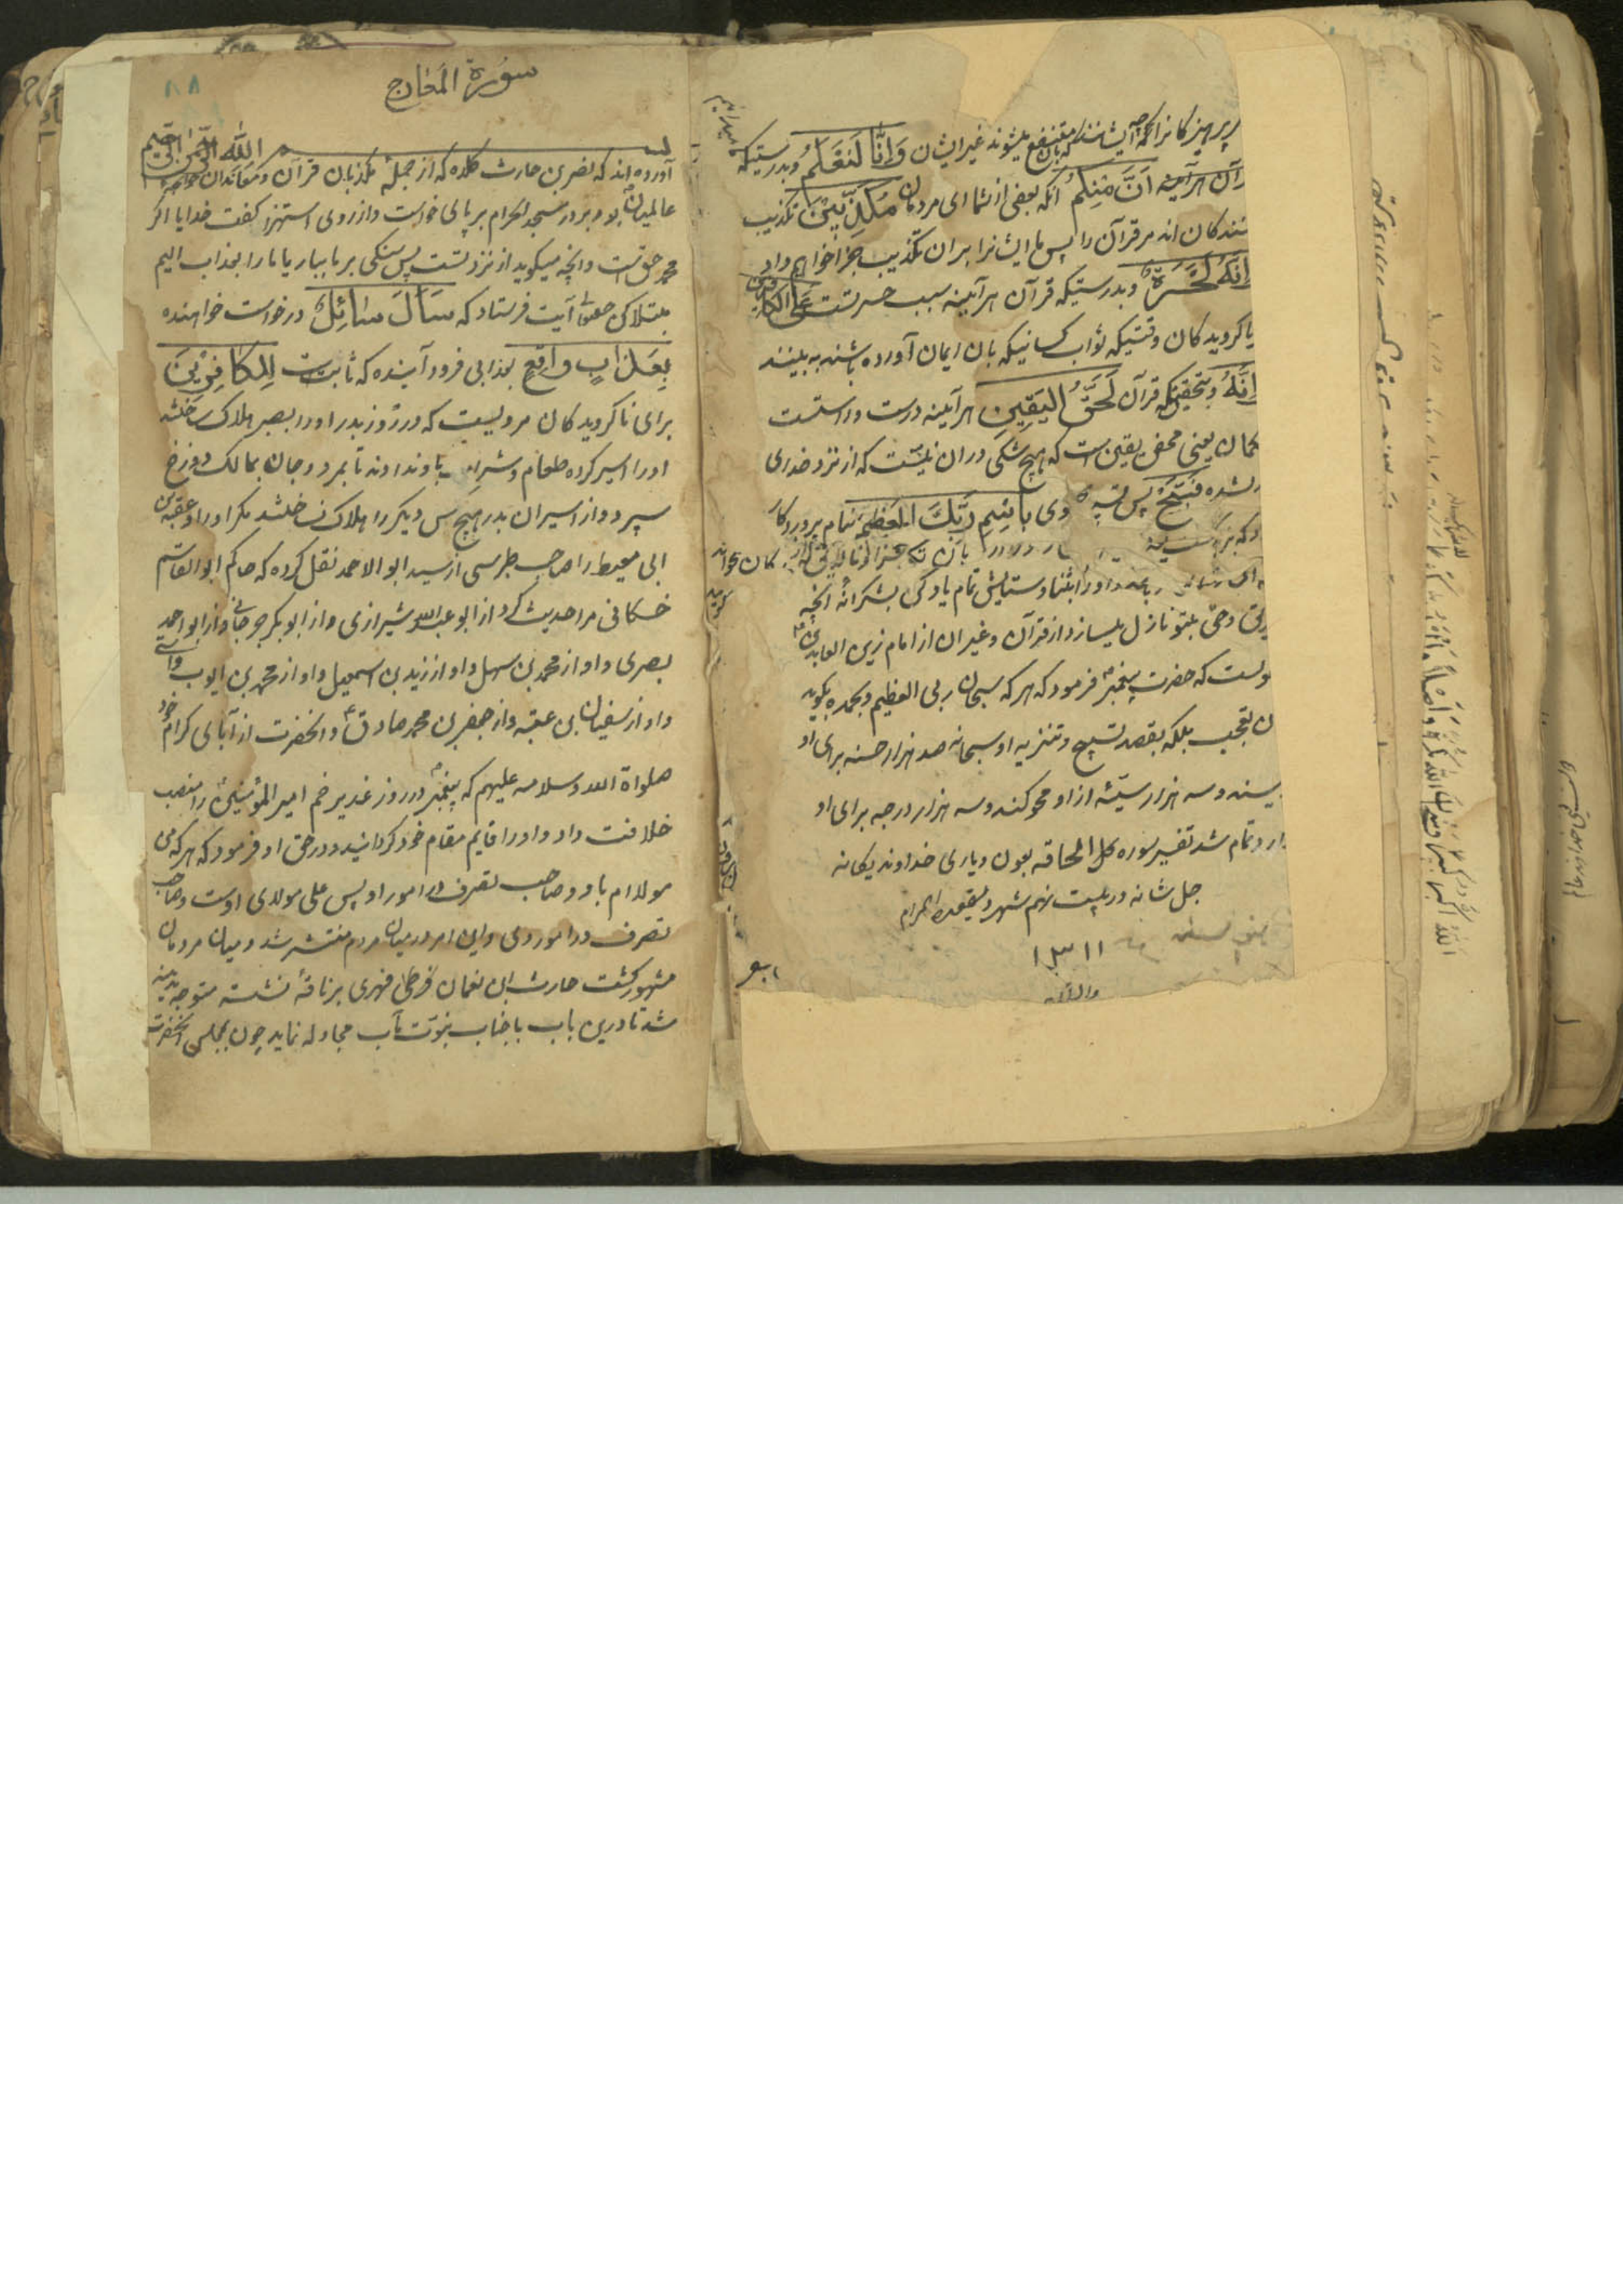 پرهیزکانرا چه ایشانند که بآن منتفع میشوند نه غیر ایشان وَاِنَّا لَنَعْلَمُ و بدرستیکه
آن هرآینه اَنَّ مِنکُمْ آنکه بعضی از شما ای مردمان مُکَذِّبِیْنَ تکذیب
کنندکان اند مر قرآن را پس ما ایشانرا بران تکذیب جزا خواهیم داد
وَاِنَّهُ لَحَسْرَةٌ و بدرستیکه قرآن هرآینه سبب حسرتست عَلَی الْکَافِرِیْنَ
ناکرویدکان وقتیکه ثواب کسانیکه بان ایمان آورده باشند به بینند
وَاِنَّهُ و بتحقیق که قرآن لَحَقُّ الْیَقِیْنِ هرآینه درست و راستست
کمان یعنی محض یقین است که هیچ شکی دران نیست که از نزد خدای
شده فَسَبِّحْ پس بِاسْمِ رَبِّكَ الْعَظِیْمِ بنام پروردکار
او را بثنا و ستایش تمام یاد کن بشکرانهٔ آنچه
وحی بتو نازل میسازد از قرآن و غیر آن از امام زین العابدین ع
که حضرت پیغمبر ص فرمود که هرکه سبحان ربی العظیم وبحمده بکوید
تعجب بلکه بقصد تسبیح و تنزیه او سبحانه صد هزار حسنه برای او
سند و سه هزار سیئه از او محو کند و سه هزار درجه برای او
دارد تمام شد تفسیر سوره الحاقه بعون و یاری خداوند یکانه
جل شانه در بیست نهم شهر ذیقعدة الحرام
١٣١١
سُورَةُ الْمَعَارِج
بسم الله الرحمن الرحیم
آورده اند که نضر بن حارث کلده که از جملهٔ مکذبان قرآن و معاندان خواجه
عالمیان بود بر در مسجد الحرام بر پای خواست و از روی استهزا کفت خدایا اکر
محمد حق است و آنچه میکوید از نزد تست پس سنکی بر ما ببار یا ما را بعذاب الیم
مبتلا کن حقتعالی آیت فرستاد که سَاَلَ سَائِلٌ درخواست خواهنده
بِعَذَابٍ وَاقِعٍ بعذابی فرود آینده که ثابت است لِلْکَافِرِیْنَ
برای ناکرویدکان مرویست که در روز بدر او را بصبر هلاک ساختند
او را اسیر کرده طعام و شراب باو ندادند تا بمرد و جان بمالک دوزخ
سپرد و از اسیران بدر هیچ کس دیکر را هلاک نساختند مکر او را و عقبة بن
ابی معیط را صاحب طبرسی از سید ابو الاحمد نقل کرده که حاکم ابو القاسم
حسکانی مرا حدیث کرد از ابو عبدالله شیرازی و از ابو بکر جرجانی و از ابو احمد
بصری و او از محمد بن سهل و او از زید بن اسمعیل و او از محمد بن ایوب واسطی
و او از سفیان بن عقبه و از جعفر بن محمد صادق ع و آنحضرت از آبای کرام خود
صلواة الله و سلامه علیهم که پیغمبر در روز غدیر خم امیر المؤمنین را منصب
خلافت داد و او را قایم مقام خود کردانید و در حق او فرمود که هرکه من
مولا ام باو و صاحب تصرف در امور او پس علی مولای اوست و صاحب
تصرف در امور وی و این امر در میان مردم منتشر شد و میان مردمان
مشهور کشت حارث ابن نعمان فهری بر ناقهٔ نشسته متوجه مدینه
شد تا درین باب با جناب نبوت مآب مجادله نماید چون بمجلس آنحضرت